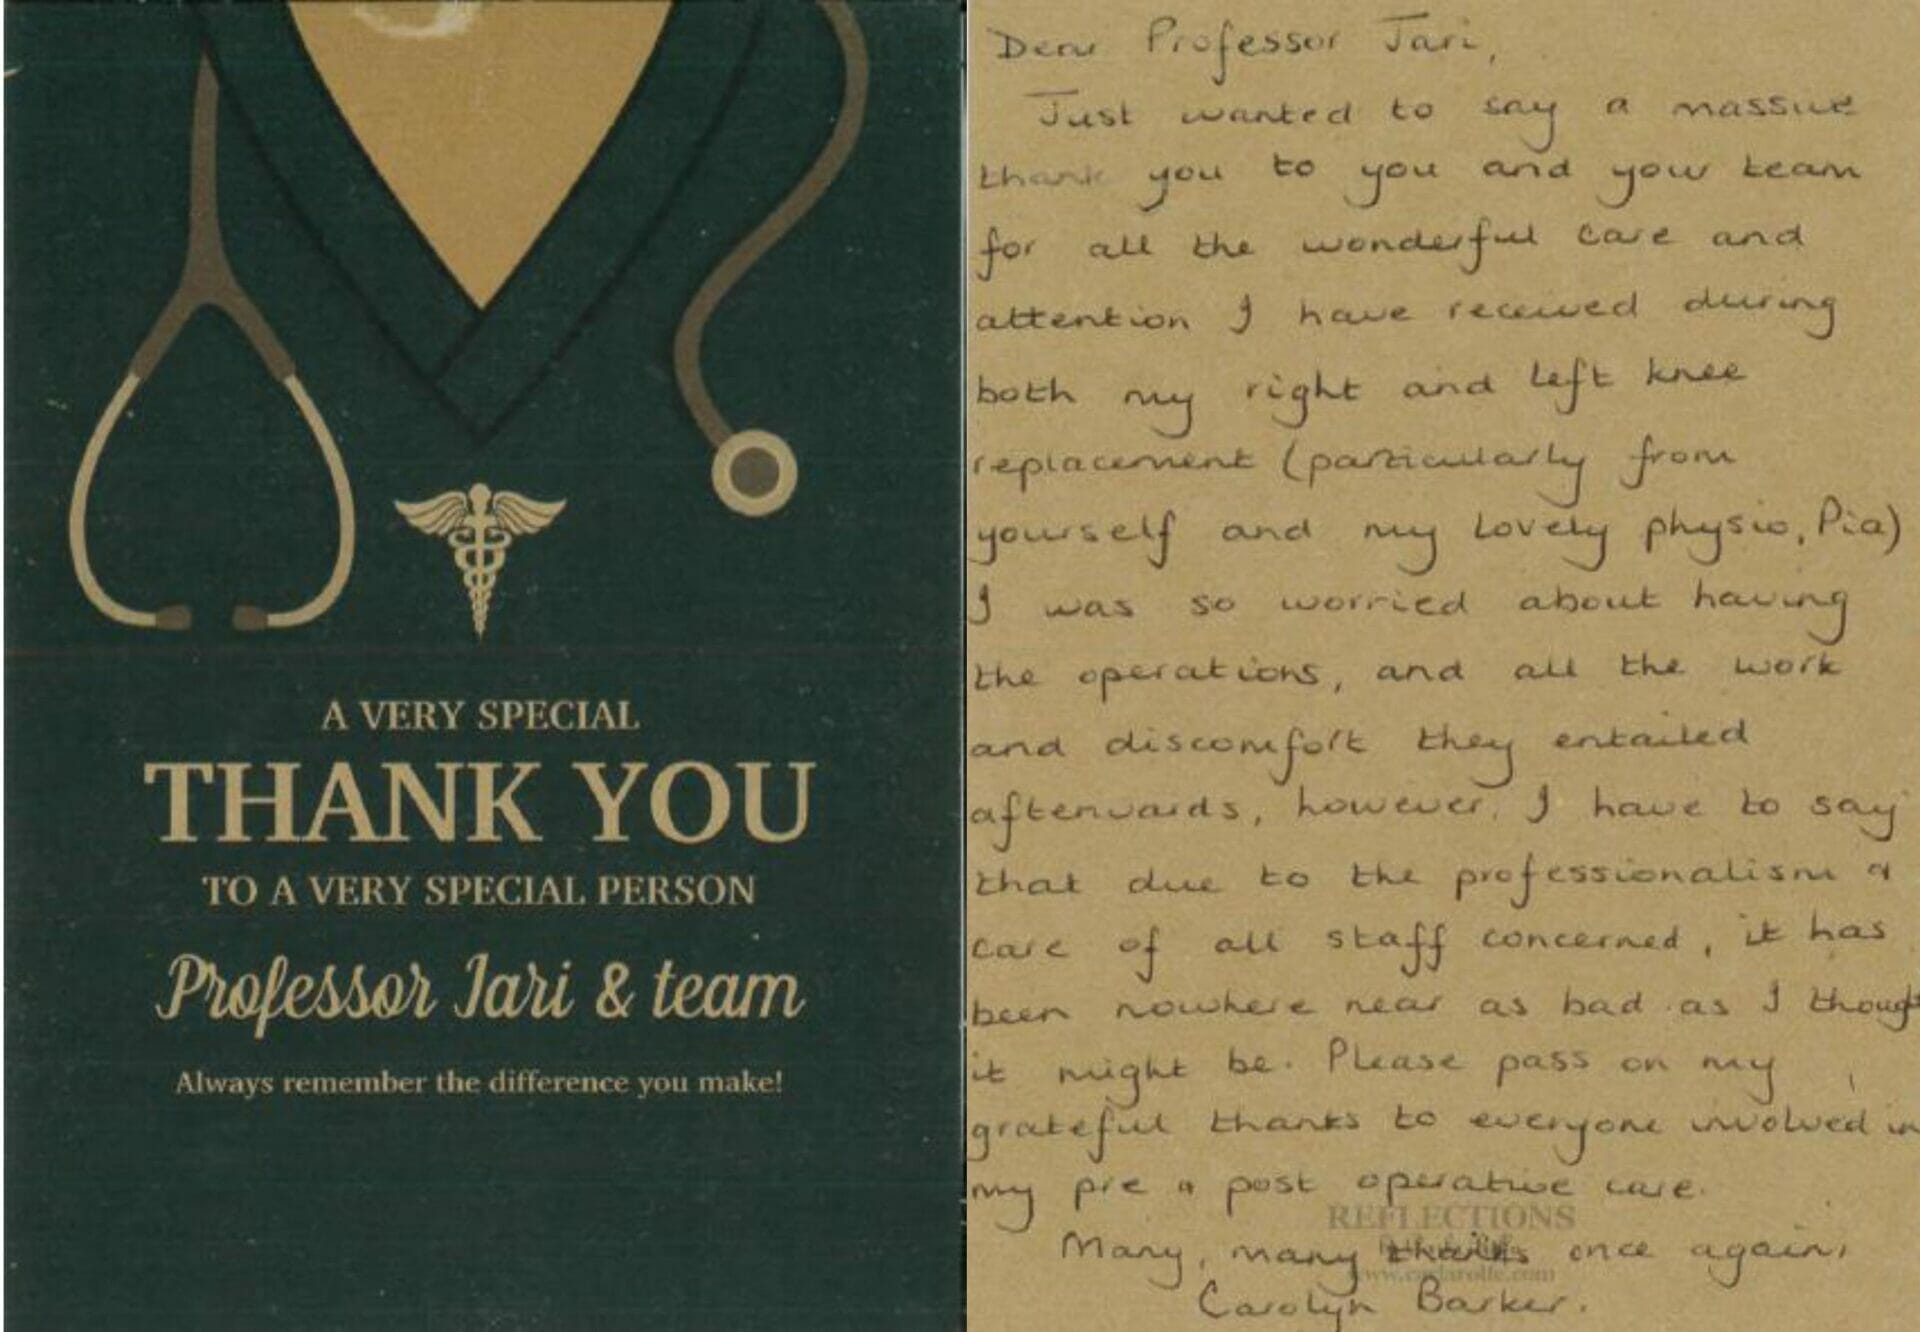 A VERY SPECIAL
THANK YOU
TO A VERY SPECIAL PERSON
Professor Jari & team
Always remember the difference you make!
Dear Professor Jari,
Just wanted to say a massive
thank you to you and your team
for all the wonderful care and
attention I have received during
both my right and left knee
replacement (particularly from
yourself and my lovely physio, Pia)
I was so worried about having
the operations, and all the work
and discomfort they entailed
afterwards, however, I have to say
that due to the professionalism &
care of all staff concerned, it has
been nowhere near as bad as I though
it might be. Please pass on my
grateful thanks to everyone involved in
my pre & post operative care.
REFLECTIONS
Many, many thanks once again,
Carolyn Barker.